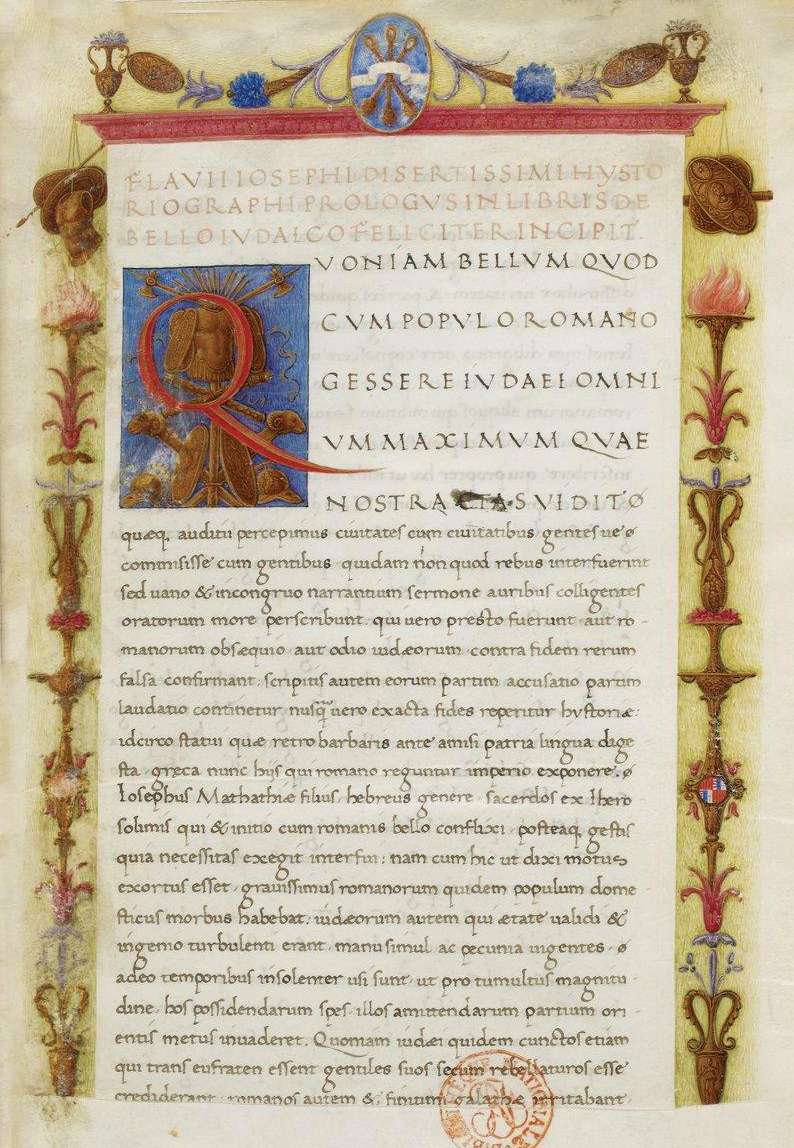 FLAVII IOSEPHI DISERTISSIMI HYSTO
RIOGRAPHI PROLOGVS IN LIBRIS DE
BELLO IVDAICO FELICITER INCIPIT.
QVONIAM BELLVM QVOD
CVM POPVLO ROMANO
GESSERE IVDAEI OMNI
VM MAXIMVM QVAE
NOSTRA ETAS VIDIT Ø
quæq, auditu percepimus ciuitates cum ciuitatibus gentes ue ø
commisisse cum gentibus quidam non quod rebus interfuerint
sed uano & incongruo narrantium sermone auribus colligentes
oratorum more perscribunt. qui uero presto fuerunt aut ro-
manorum obsæquio aut odio iudæorum contra fidem rerum
falsa confirmant: scriptis autem eorum partim accusatio partim
laudatio continetur nusq̃ uero exacta fides reperitur hystoriæ:
idcirco statui quæ retro barbaris ante amisi patria lingua dige
sta greca nunc hijs qui romano reguntur imperio exponere. ø
Iosephus Mathathiæ filius, hebreus genere sacerdos ex Ihero
solimis qui & initio cum romanis bello conflixi posteaq, gestis
quia necessitas exegit interfui: nam cum hic ut dixi motus
exortus esset, grauissimus romanorum quidem populum dome
sticus morbus habebat: iudæorum autem qui ætate ualidi &
ingenio turbulenti erant manu simul ac pecunia uigentes ø
adeo temporibus insolenter usi sunt ut pro tumultus magnitu
dine hos possidendarum spes, illos amittendarum partium ori
entis metus inuaderet. Quoniam iudæi quidem cunctos etiam
qui trans eufraten essent gentiles suos secum rebellaturos esse
crediderant romanos autem & finitimi galathæ irritabant